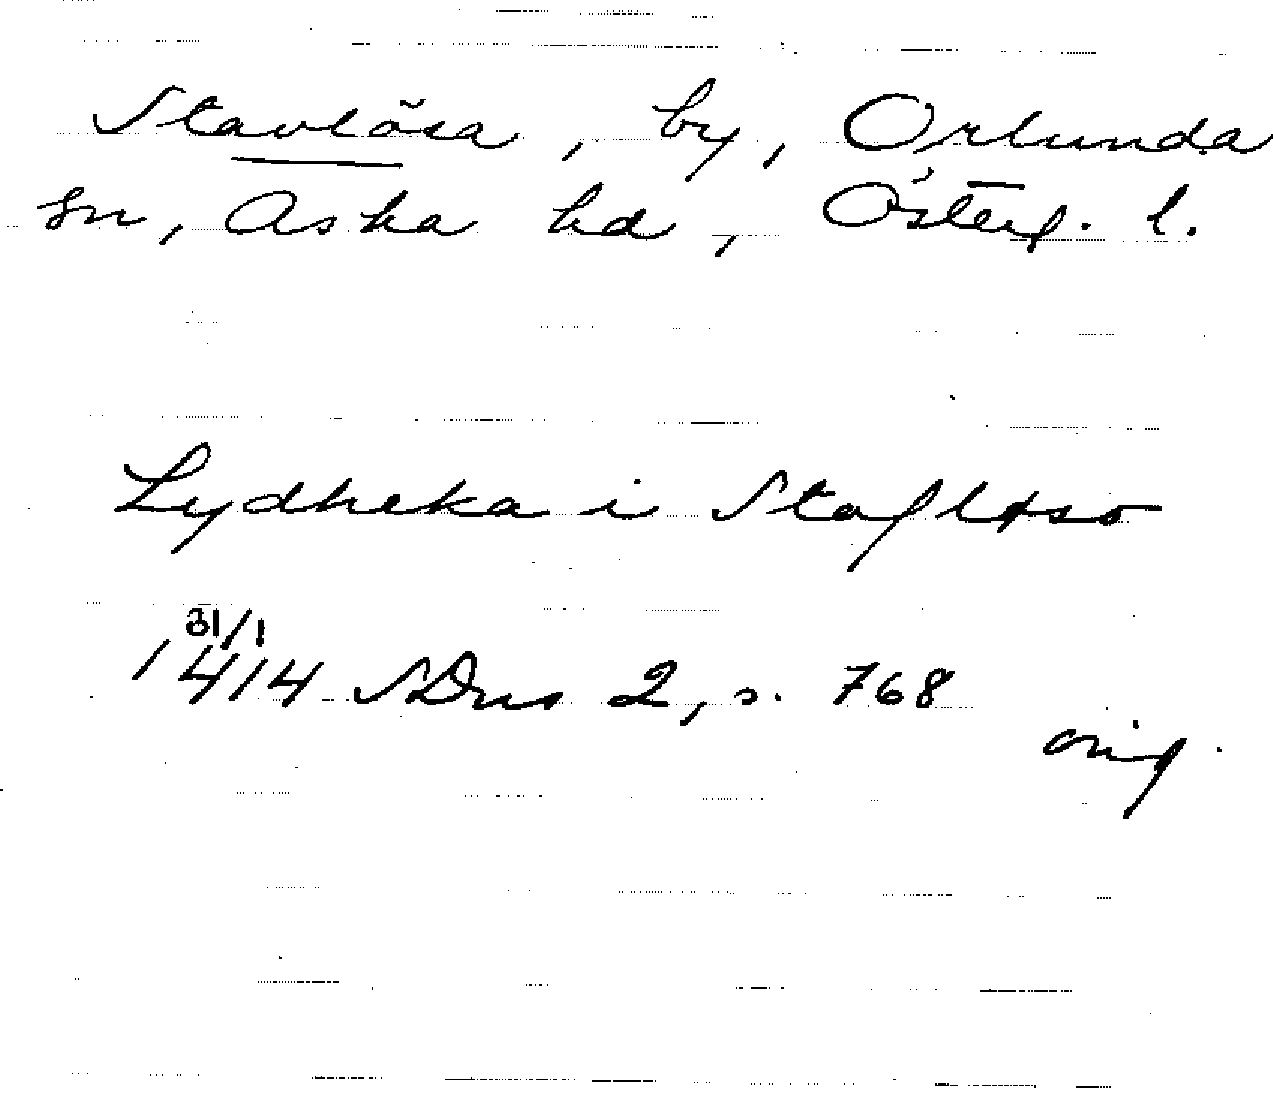 Stavlösa, by, Orlunda
sn, Aska hd, Österg. l.
Lydheka i Stafløso
31/1
1414 SDns 2, s. 768
orig.